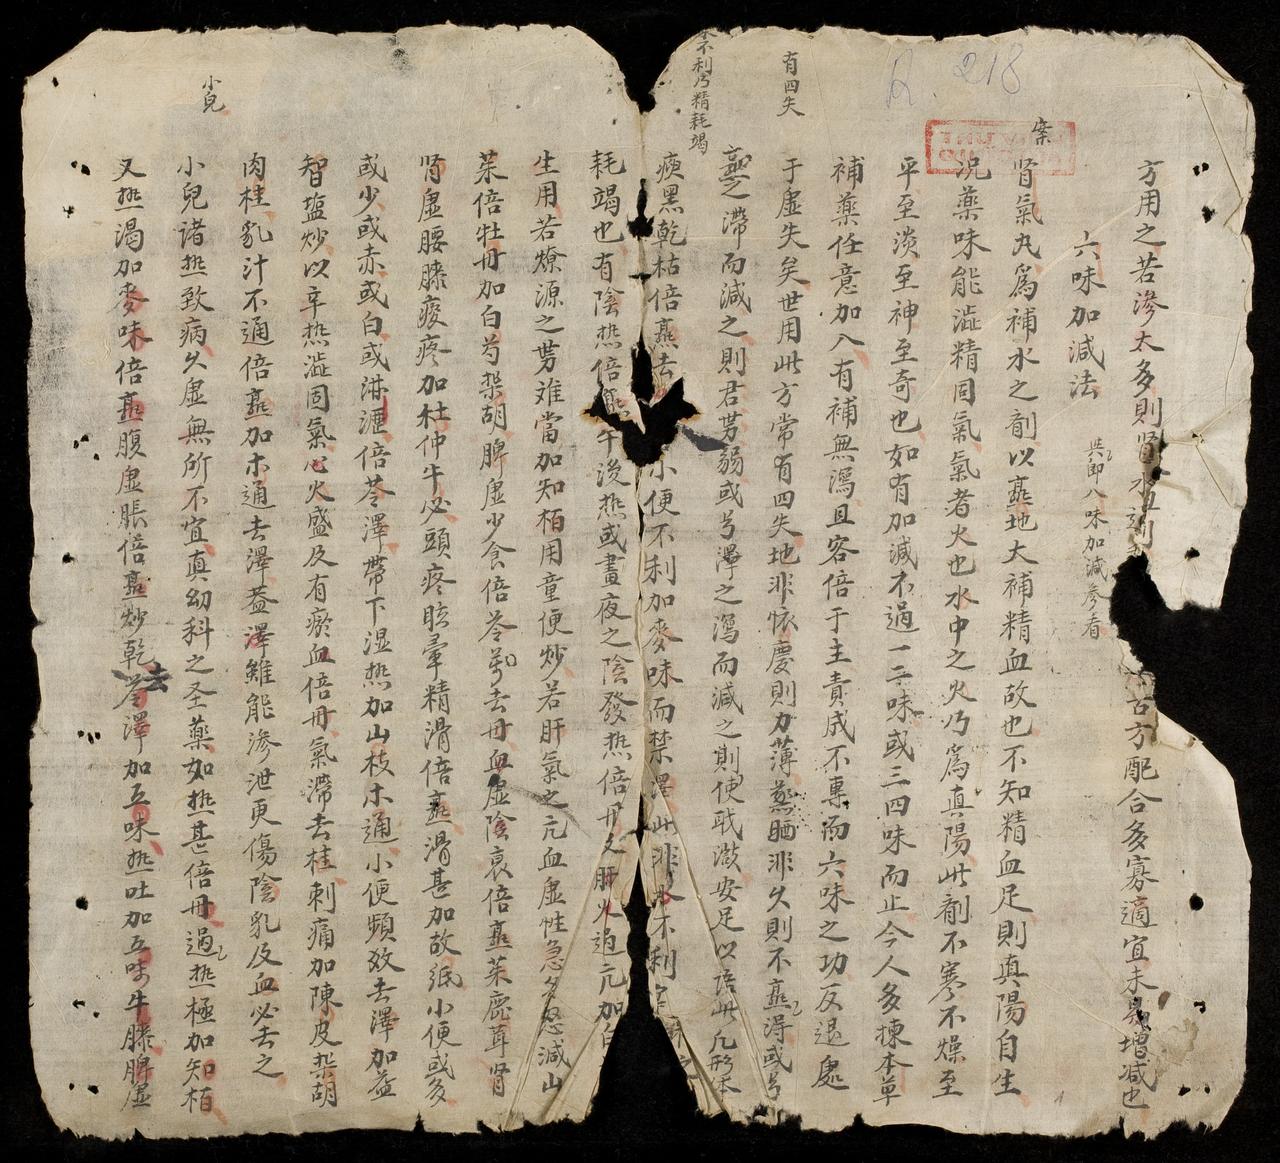 方用之若滲太多則腎水 古方配合多寡適宜未㒵增減也
六味加減法 共即八味加減參看
案
腎氣丸為補水之剤以𤎱地大補精血故也不知精血足則真陽自生
况藥味能澁精固氣氣者火也水中之火乃為真陽此剤不寒不燥至
平至淡至神至奇也如有加減不過一二味或三四味而止今人多揀本草
補藥任意加入有補無瀉且客倍于主責成不專而六味之功反退處
有四失
于虛失矣世用此方常有四失地非怀慶則力薄蒸晒非久則不𤎱淂或㝵
𤎱之滯而減之則君势弱或㝵澤之瀉而減之則使
不利乃精耗竭
瘐黑乾枯倍𤎱去 小便不利加麥味而禁澤此非 不利
耗竭也有陰热倍𤎱午後热或晝夜之陰發热倍丹又肝火過亢加白
生用若燎源之势难當加知栢用童便炒若肝氣之亢血虛性急多怒減山
茱倍牡丹加白芍柴胡脾虛少食倍苓药去丹血虛陰衰倍𤎱茱鹿茸腎
腎虛腰膝痠疼加杜仲牛必頭疼眩暈精滑倍𤎱滑甚加故紙小便或多
或少或赤或白或淋瀝倍苓澤帶下湿热加山枝木通小便頻效去澤加益
智塩炒以辛热澁固氣心火盛及有瘀血倍丹氣滯去桂刺痛加陳皮柴胡
肉桂乳汁不通倍𤎱加木通去澤葢澤雖能滲泄更傷陰乳及血必去之
小兒
小兒諸热致病久虛無所不宜真幼科之圣藥如热甚倍丹過热極加知栢
又热渴加麥味倍𤎱腹虛脹倍𤎱炒乾去苓澤加五味热吐加五味牛膝脾虛